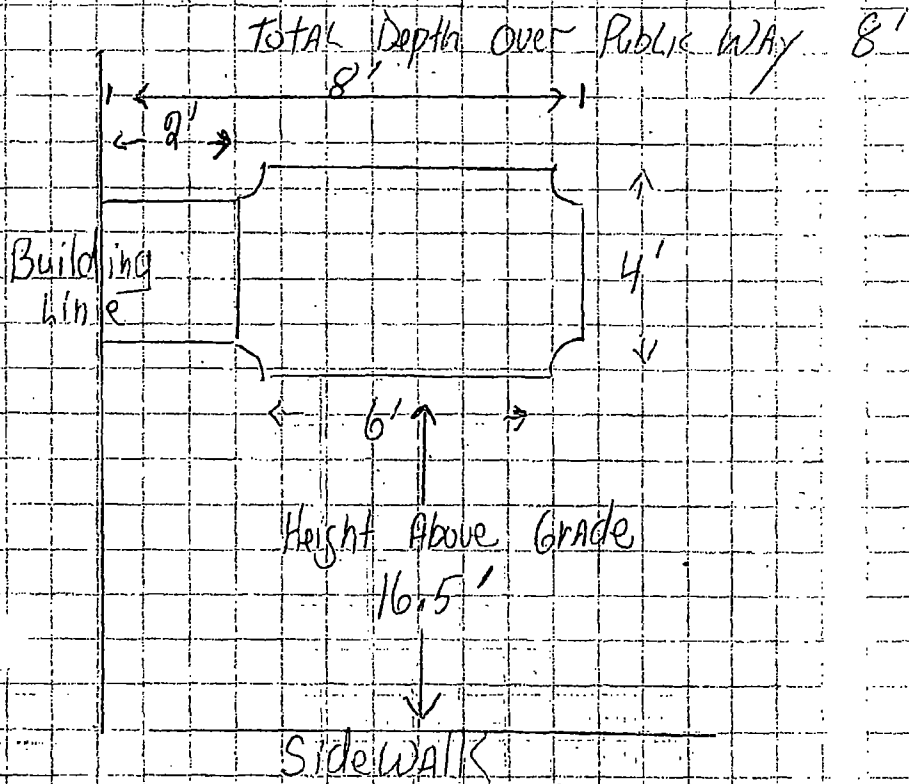 TOTAL Depth Over Public WAY 8'
8'
2'
Building
Line
4'
6'
Height Above Grade
16.5'
SideWALK